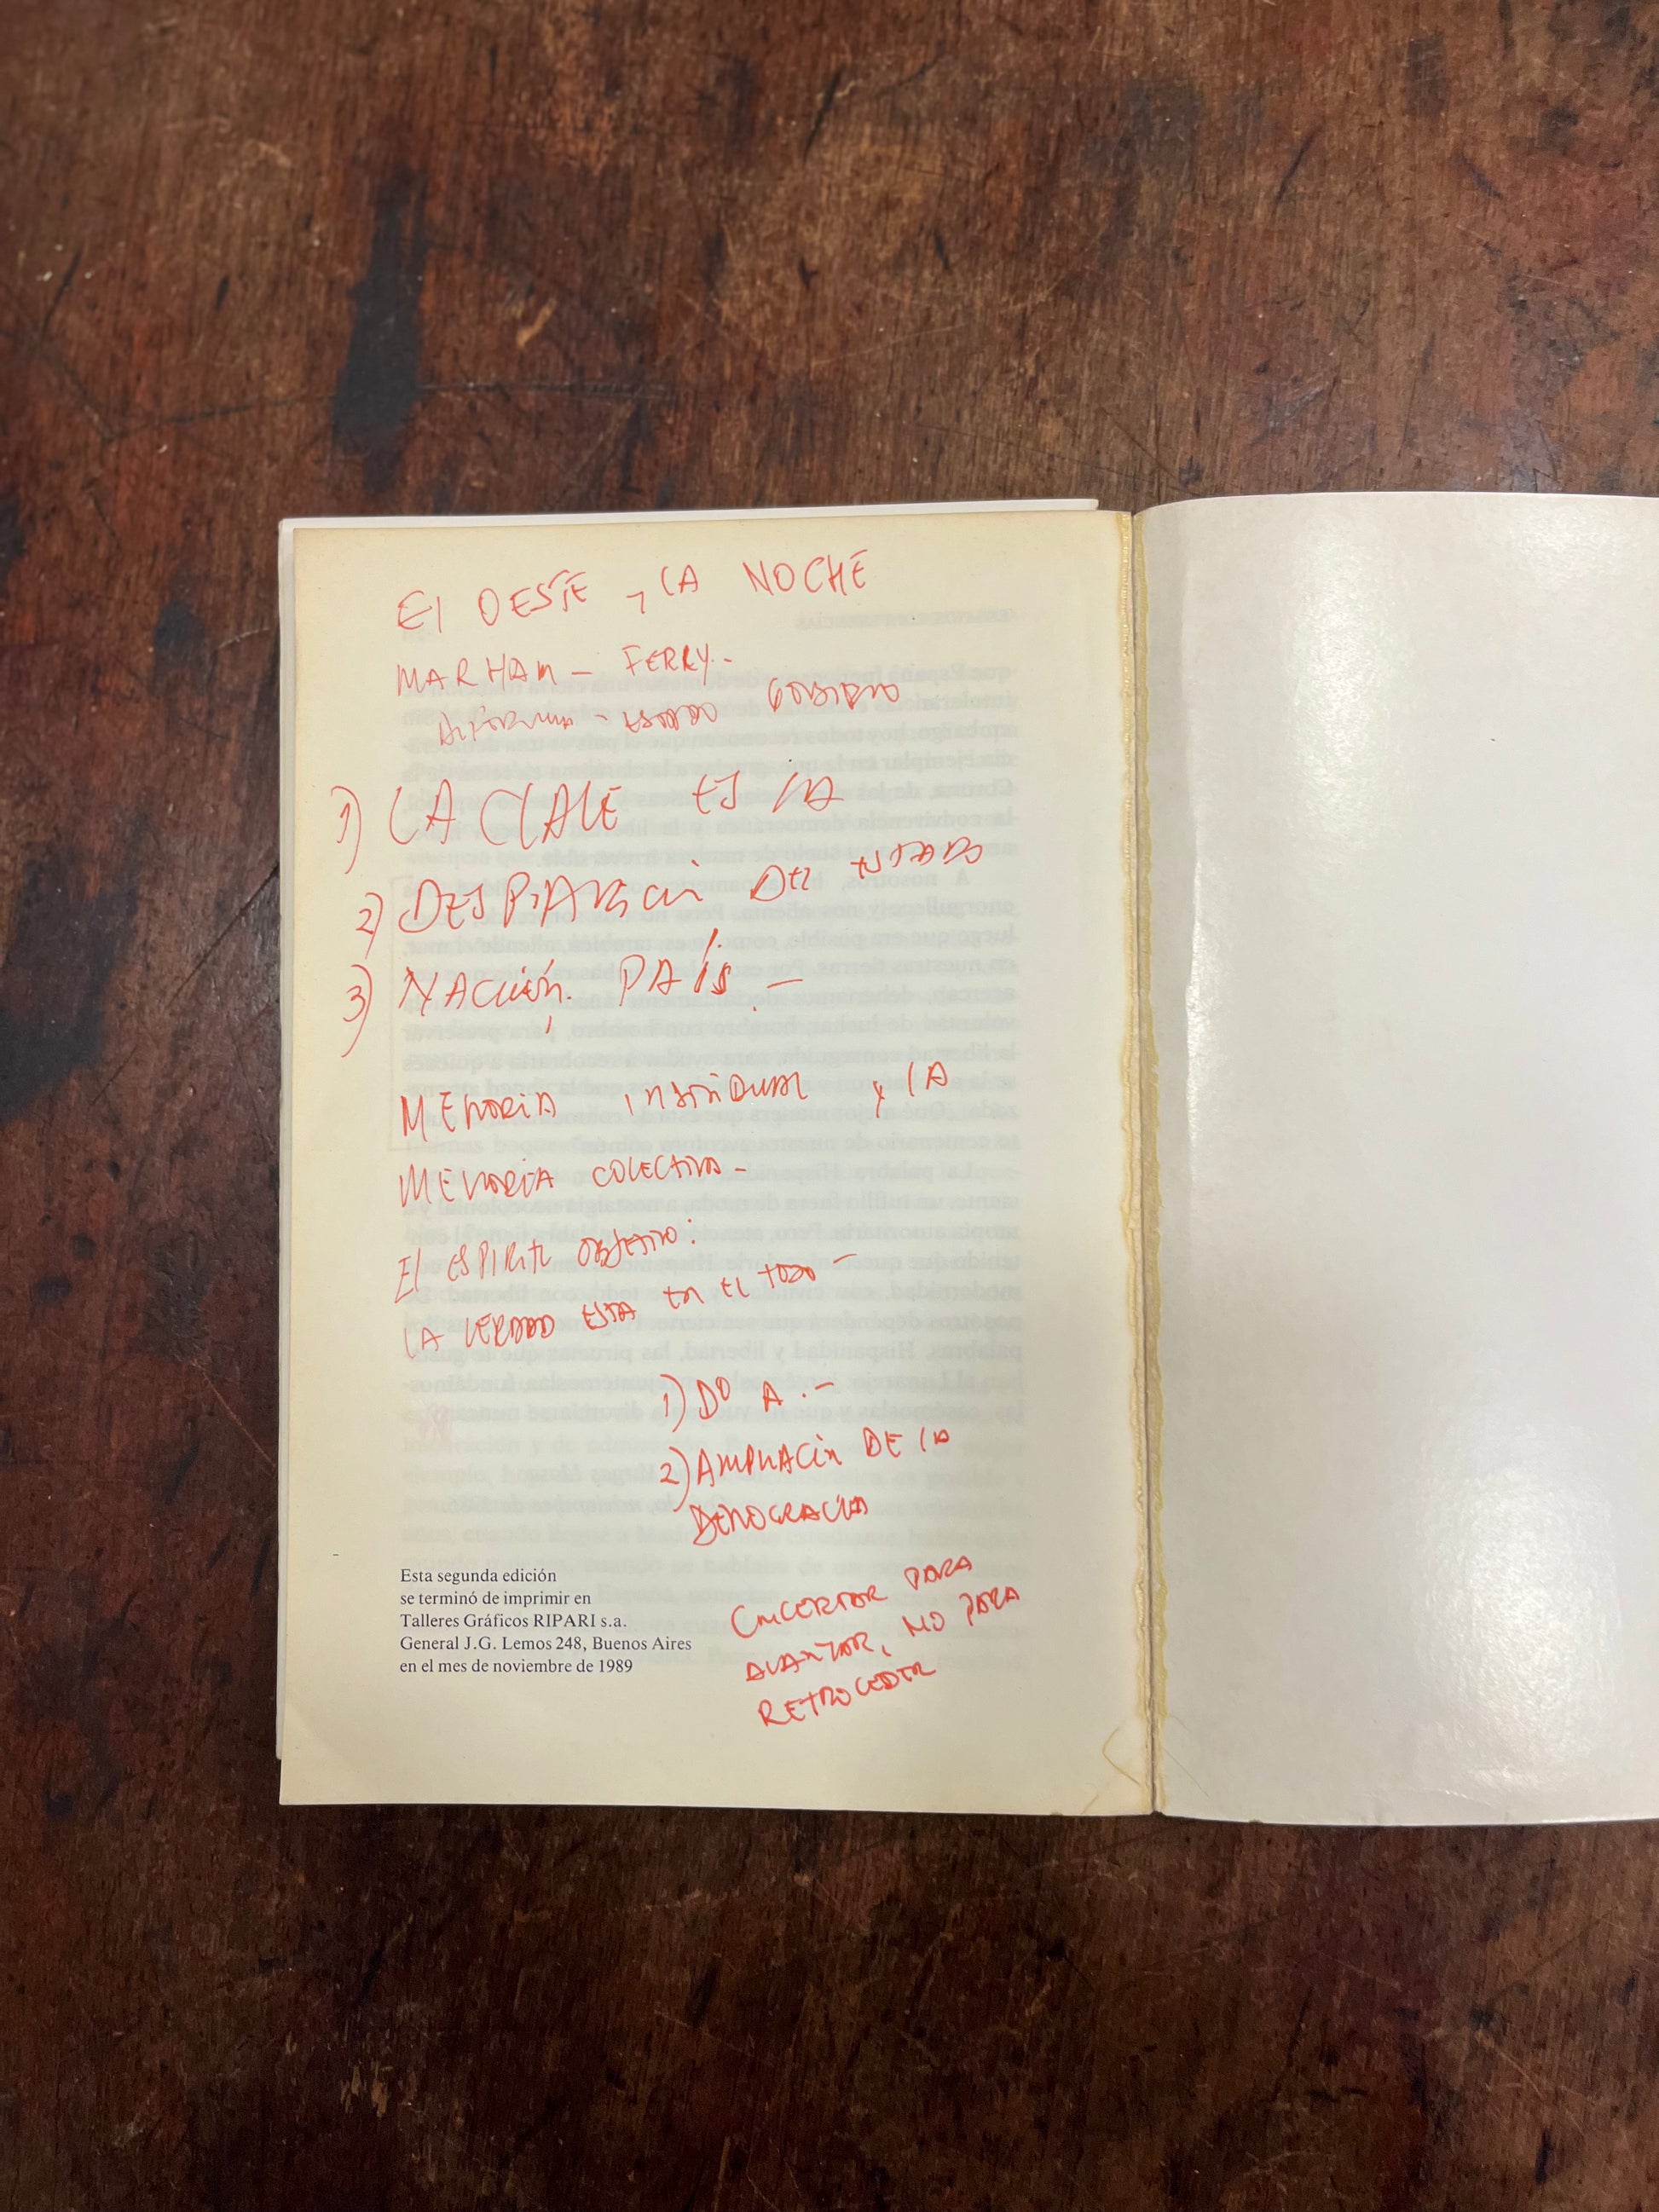 El OESTE y LA NOCHE
MARHAM - FERRY.-
ESTADO GOBIERNO
1) LA CLAVE ES LA
2) DEL ESTADO
3) NACIÓN. PAÍS. -
MEMORIA INDIVIDUAL y LA
MEMORIA COLECTIVA -
El ESPIRITU OBJETIVO:
LA VERDAD ESTA EN EL TODO -
1) Dº A. -
2) AMPLIACIÓN DE LA
DEMOCRACIA
CONCERTAR PARA
AVANZAR, NO PARA
RETROCEDER
Esta segunda edición
se terminó de imprimir en
Talleres Gráficos RIPARI s.a.
General J.G. Lemos 248, Buenos Aires
en el mes de noviembre de 1989